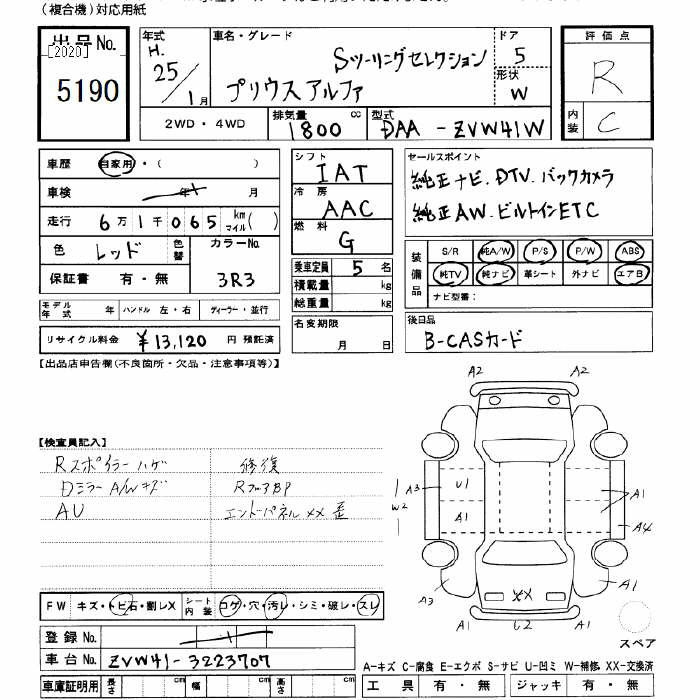 (複合機)対応用紙
出品No. [2020] 5190
年式 H. 25/1月
車名・グレード Sツーリングセレクション
プリウスアルファ
ドア 5
形状 W
評価点 R
内装 C
2WD・4WD
排気量 1800 cc
型式 DAA-ZVW41W
車歴 自家用・( )
車検 年 月
走行 6万1千065 km マイル( )
色 レッド 色替 カラーNo. 3R3
保証書 有・無
モデル年式 年 ハンドル 左・右 ディーラー・並行
リサイクル料金 ¥13,120 円 預託済
シフト IAT
冷房 AAC
燃料 G
乗車定員 5 名
積載量 kg
総重量 kg
名変期限 月 日
セールスポイント
純正ナビ.DTV.バックカメラ
純正AW.ビルトインETC
装備品 S/R 純A/W P/S P/W ABS
純TV 純ナビ 革シート 外ナビ エアB
ナビ型番:
後日品
B-CASカード
【出品店申告欄(不良箇所・欠品・注意事項等)】
【検査員記入】
Rスポイラーハゲ 修復
DミラーA/Wキズ RフロアBP
AU エンドパネルXX歪
FW キズ・トビ石・割レX シート内装 コゲ・穴・汚レ・シミ・破レ・スレ
登録No.
車台No. ZVW41-3223707
車庫証明用 長さ cm 幅 cm 高さ cm
A2 A2
A3 U1 A1
W2 A1 A4
A3 XX A1
A1 G2 A1
スペア
A-キズ C-腐食 E-エクボ S-サビ U-凹ミ W-補修, XX-交換済
工具 有・無 ジャッキ 有・無